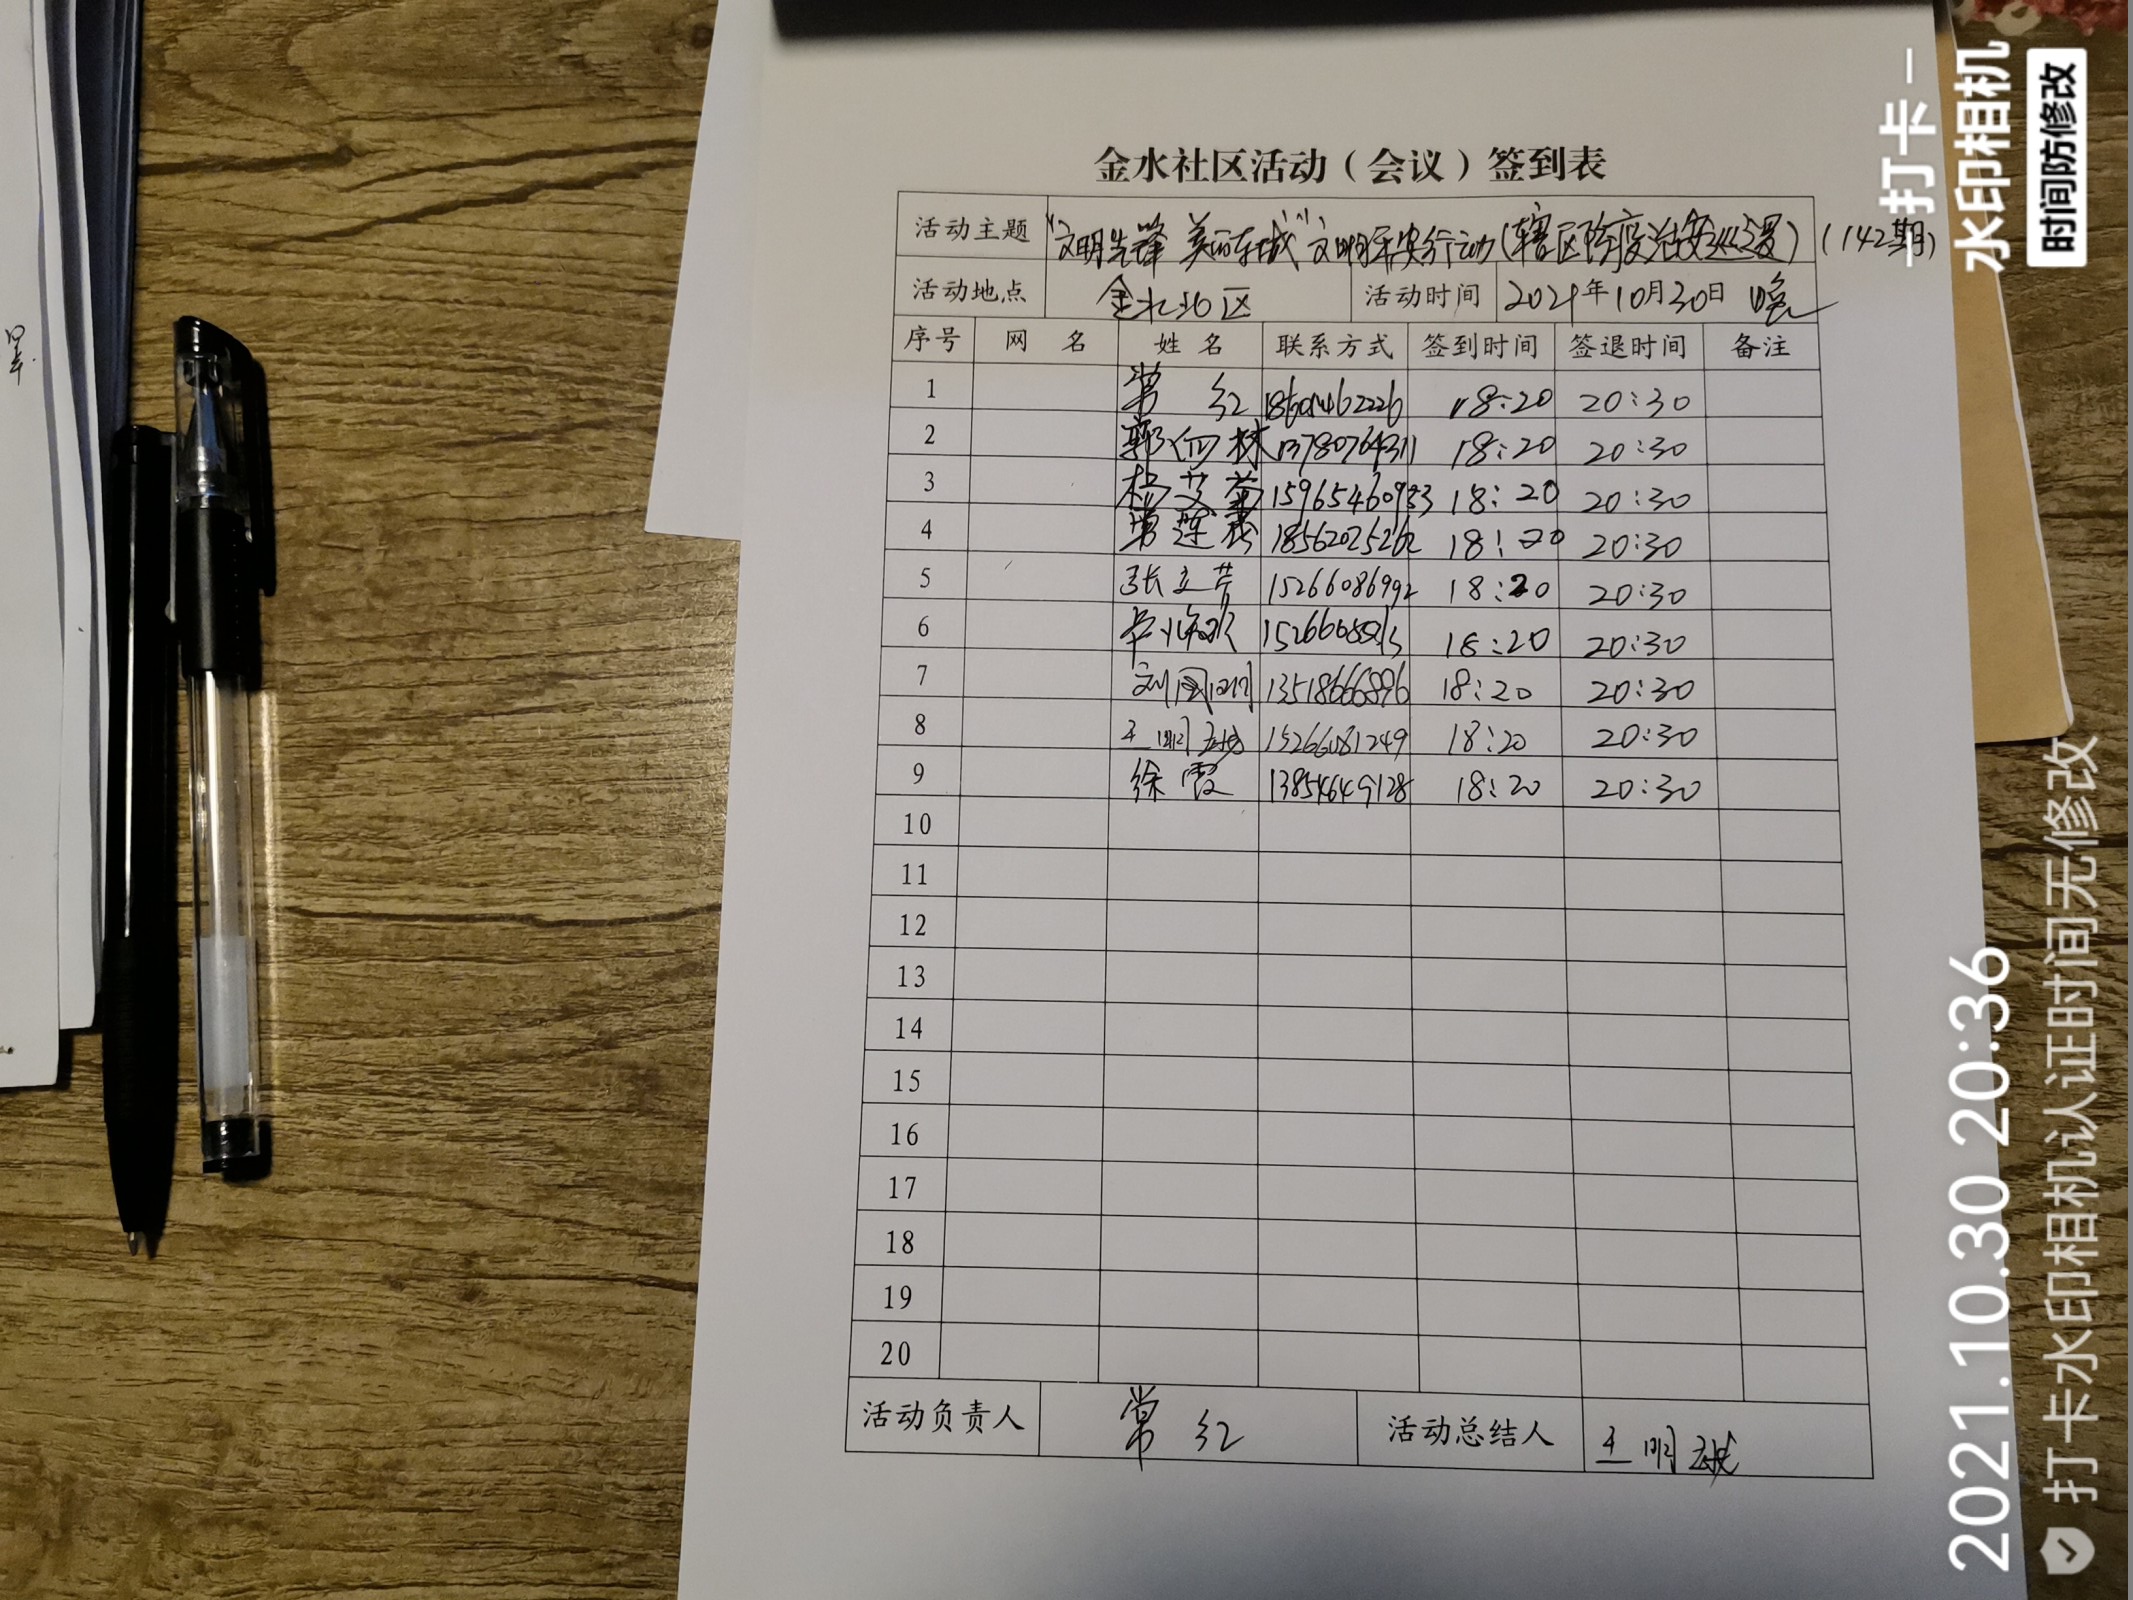 金水社区活动（会议）签到表
活动主题 "文明先锋 美丽东城"文明平安行动(辖区防疫治安巡逻)(142期)
活动地点 金水北区 活动时间 2021年10月30日 晚
序号 网 名 姓 名 联系方式 签到时间 签退时间 备注
1 常 红 18601462226 18:20 20:30
2 郭 林 13780764311 18:20 20:30
3 杨艾菊 15965460933 18:20 20:30
4 莲 18562025262 18:20 20:30
5 张立芹 15266086992 18:20 20:30
6 18:20 20:30
7 刘国 13518666896 18:20 20:30
8 王明 15266081249 18:20 20:30
9 徐霞 13854649128 18:20 20:30
10
11
12
13
14
15
16
17
18
19
20
活动负责人 常 红 活动总结人 王明
打卡
水印相机
时间防修改
2021.10.30 20:36
打卡水印相机认证时间无修改